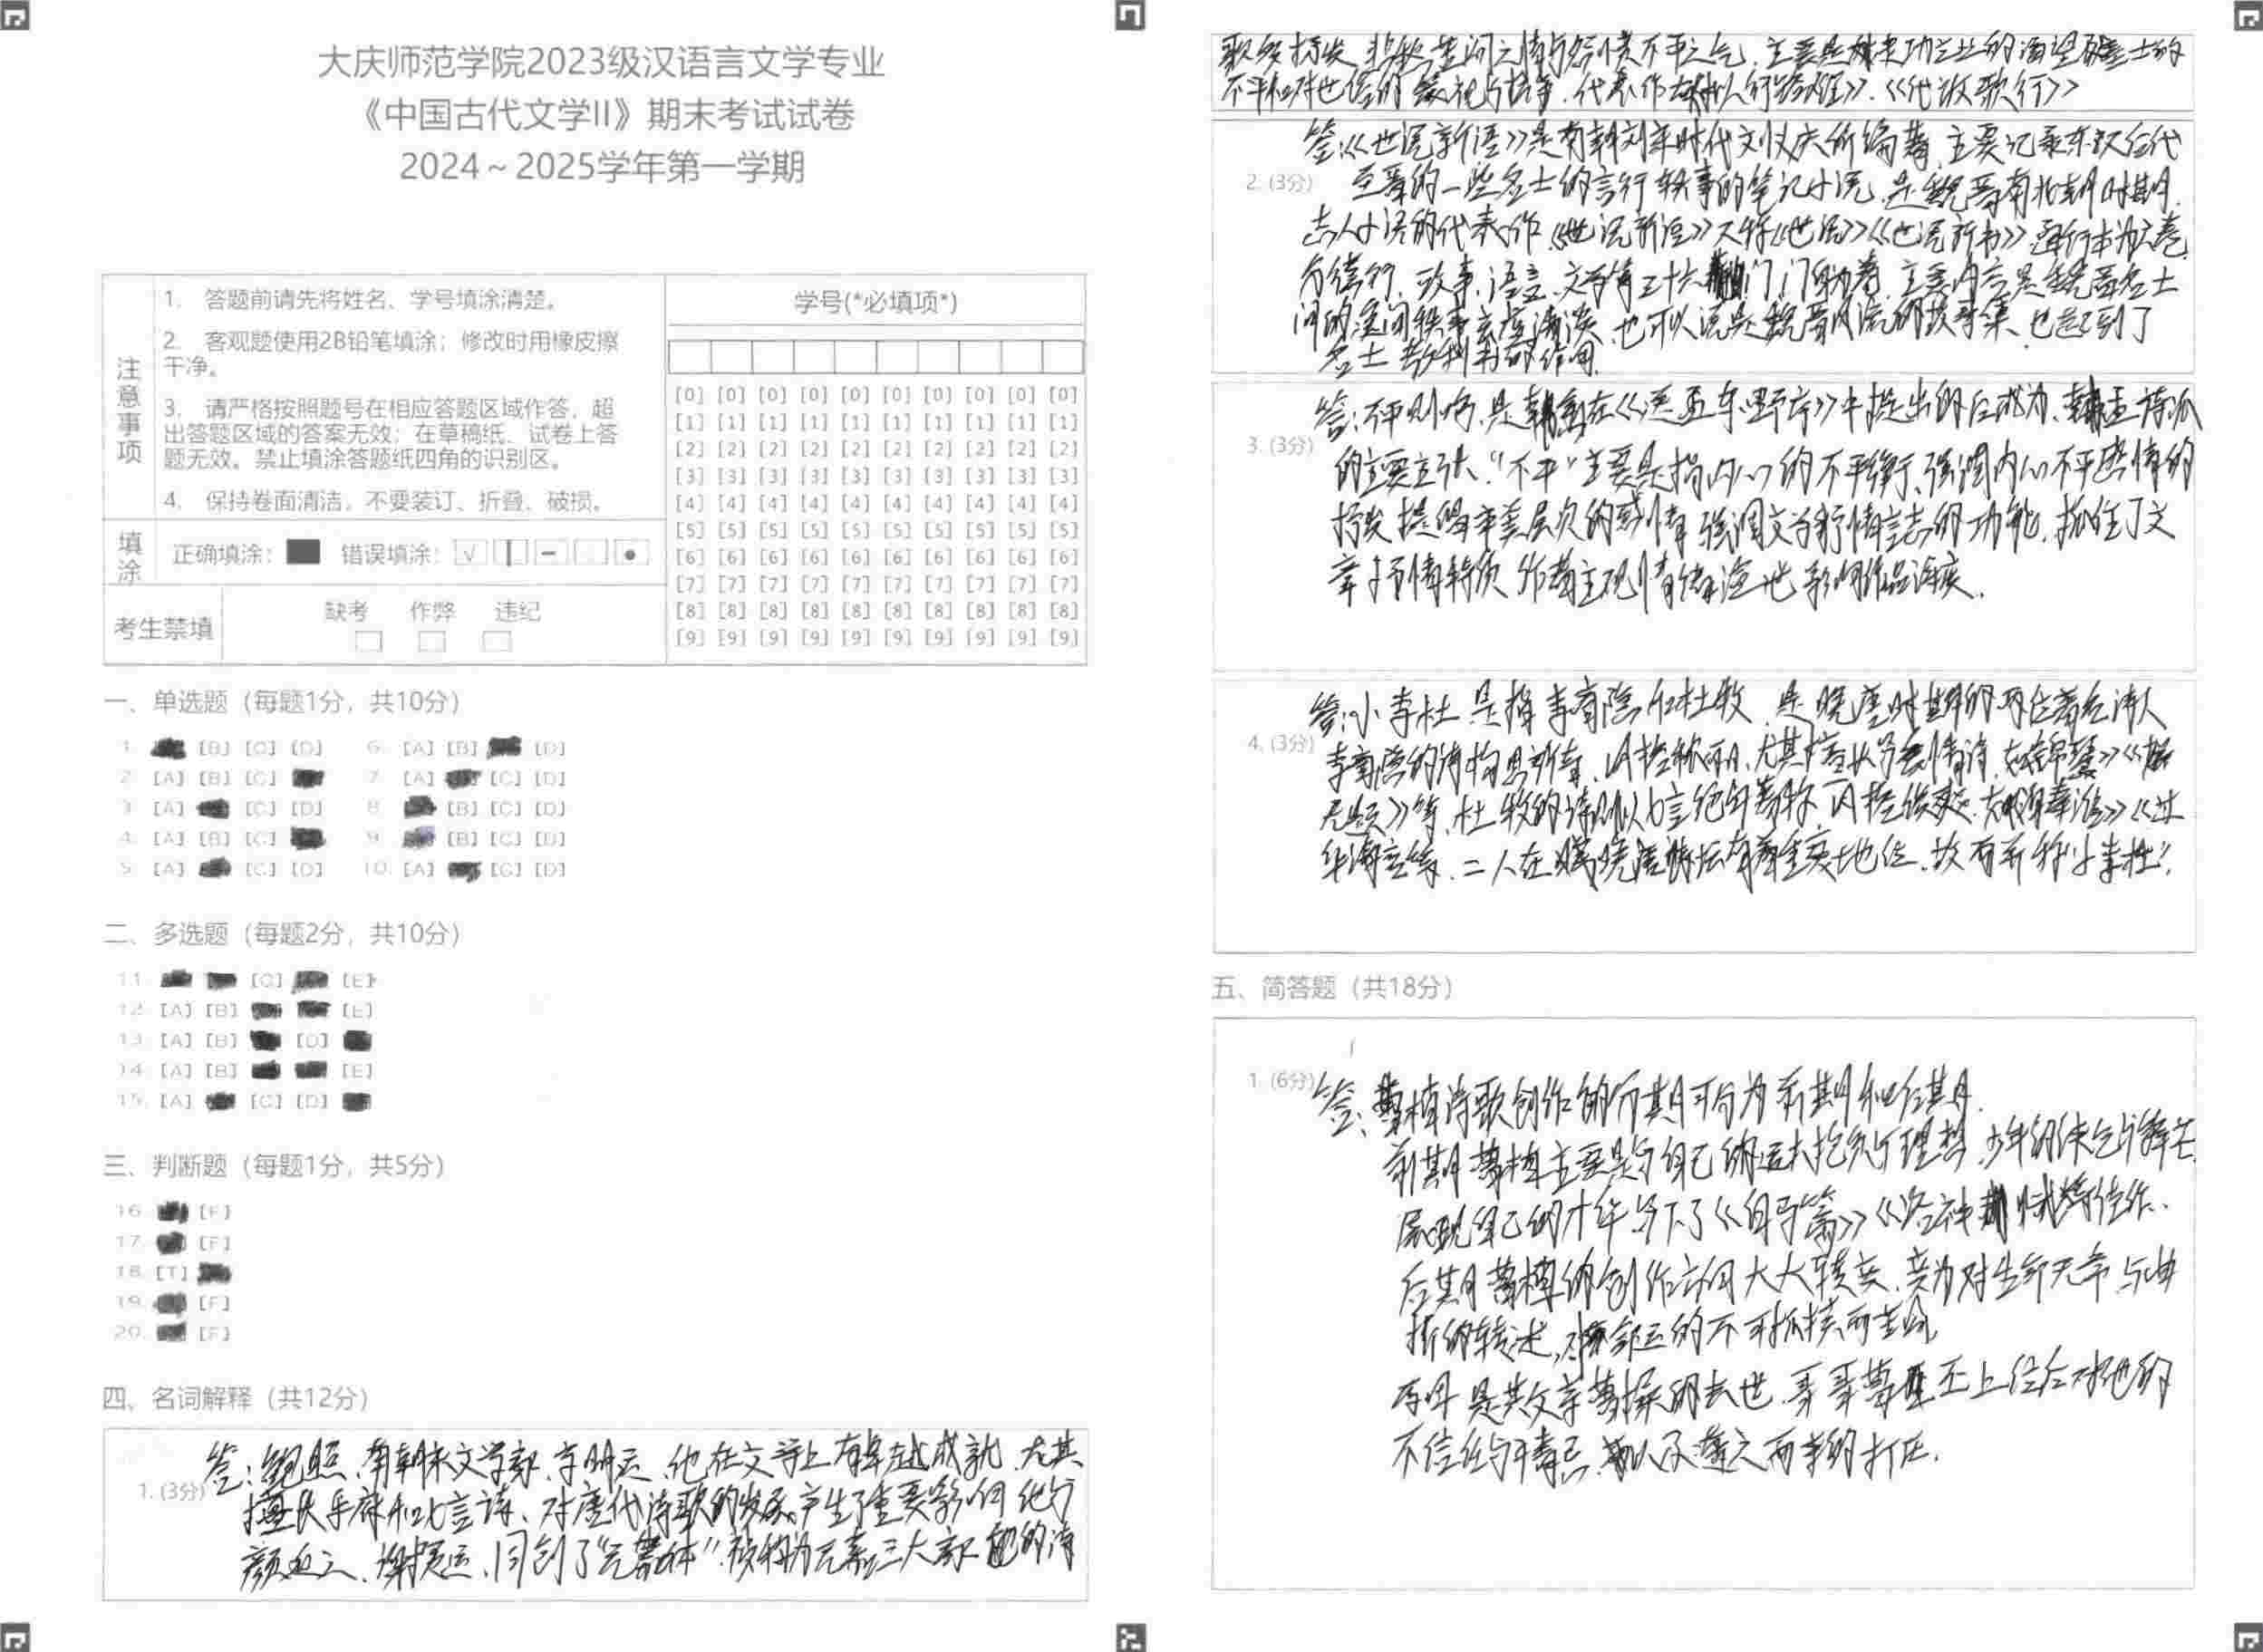 大庆师范学院2023级汉语言文学专业
《中国古代文学II》期末考试试卷
2024～2025学年第一学期
注意事项
1. 答题前请先将姓名、学号填涂清楚。
2. 客观题使用2B铅笔填涂；修改时用橡皮擦
干净。
3. 请严格按照题号在相应答题区域作答，超
出答题区域的答案无效；在草稿纸、试卷上答
题无效。禁止填涂答题纸四角的识别区。
4. 保持卷面清洁，不要装订、折叠、破损。
填涂
正确填涂： 错误填涂：
考生禁填
缺考 作弊 违纪
学号(*必填项*)
[0] [0] [0] [0] [0] [0] [0] [0] [0] [0]
[1] [1] [1] [1] [1] [1] [1] [1] [1] [1]
[2] [2] [2] [2] [2] [2] [2] [2] [2] [2]
[3] [3] [3] [3] [3] [3] [3] [3] [3] [3]
[4] [4] [4] [4] [4] [4] [4] [4] [4] [4]
[5] [5] [5] [5] [5] [5] [5] [5] [5] [5]
[6] [6] [6] [6] [6] [6] [6] [6] [6] [6]
[7] [7] [7] [7] [7] [7] [7] [7] [7] [7]
[8] [8] [8] [8] [8] [8] [8] [8] [8] [8]
[9] [9] [9] [9] [9] [9] [9] [9] [9] [9]
一、单选题（每题1分，共10分）
1. [B] [C] [D] 6. [A] [B] [D]
2. [A] [B] [C] 7. [A] [C] [D]
3. [A] [C] [D] 8. [B] [C] [D]
4. [A] [B] [C] 9. [B] [C] [D]
5. [A] [C] [D] 10. [A] [C] [D]
二、多选题（每题2分，共10分）
11. [C] [E]
12. [A] [B] [E]
13. [A] [B] [D]
14. [A] [B] [E]
15. [A] [C] [D]
三、判断题（每题1分，共5分）
16. [F]
17. [F]
18. [T]
19. [F]
20. [F]
四、名词解释（共12分）
1. (3分)
答：鲍照，南朝宋文学家，字明远，他在文学上有卓越成就，尤其
擅长乐府和七言诗、对唐代诗歌的发展产生了重要影响 他与
颜延之、谢灵运、同创了“元嘉体”，被称为元嘉三大家 他的诗
歌多抒发 之情与 愤不平之气，主要是对建功立业的渴望 士的
不平和对世俗的蔑视与抗争，代表作有《拟行路难》、《代放歌行》
2. (3分)
答《世说新语》是南朝刘宋时代刘义庆所编著，主要记录东汉后代
至晋的一些名士的言行轶事的笔记小说，是魏晋南北朝时期
志人小说的代表作《世说新语》又称《世说》《世说新书》 通行本为六卷
分德行、政事、语言、文学等三十六 门，门 ，主要内容是魏晋名士
间的 轶事 清谈，也可以说是魏晋风流的故事集，也起到了
名士教科书的作用
3. (3分)
答：不平则鸣，是韩愈在《送孟东野序》中提出的后成为、韩孟诗派
的主要主张、“不平”主要是指内心的不平衡，强调内心不平感情的
抒发 提倡审美层次的感情 强调文学抒情言志的功能，抓住了文
章抒情特质 作者主观情绪 影响作品 。
4. (3分)
答：小李杜 是指李商隐和杜牧，是晚唐时期的两位著名诗人
李商隐的诗构思新奇，风格秾丽，尤其擅长写爱情诗，如《锦瑟》《
无题》等，杜牧的诗则以七言绝句著称 风格俊爽，如《泊秦淮》《过
华清宫等，二人在 晚唐诗坛有着重要地位，故有所称小李杜”。
五、简答题（共18分）
1. (6分)
答：曹植诗歌创作的分期可分为前期和后期，
前期曹植主要是写自己的远大抱负与理想，少年的侠气与锋芒，
展现自己的才华 写下了《白马篇》《洛神 赋等佳作、
后期曹植的创作方向大大转变，变为对生命无常，与曲
折的转述， 命运的不可抓摸而
原因 是其父亲曹操的去世，哥哥曹丕 上位后对他的
不信任与忌 ，以及 两年的打压。